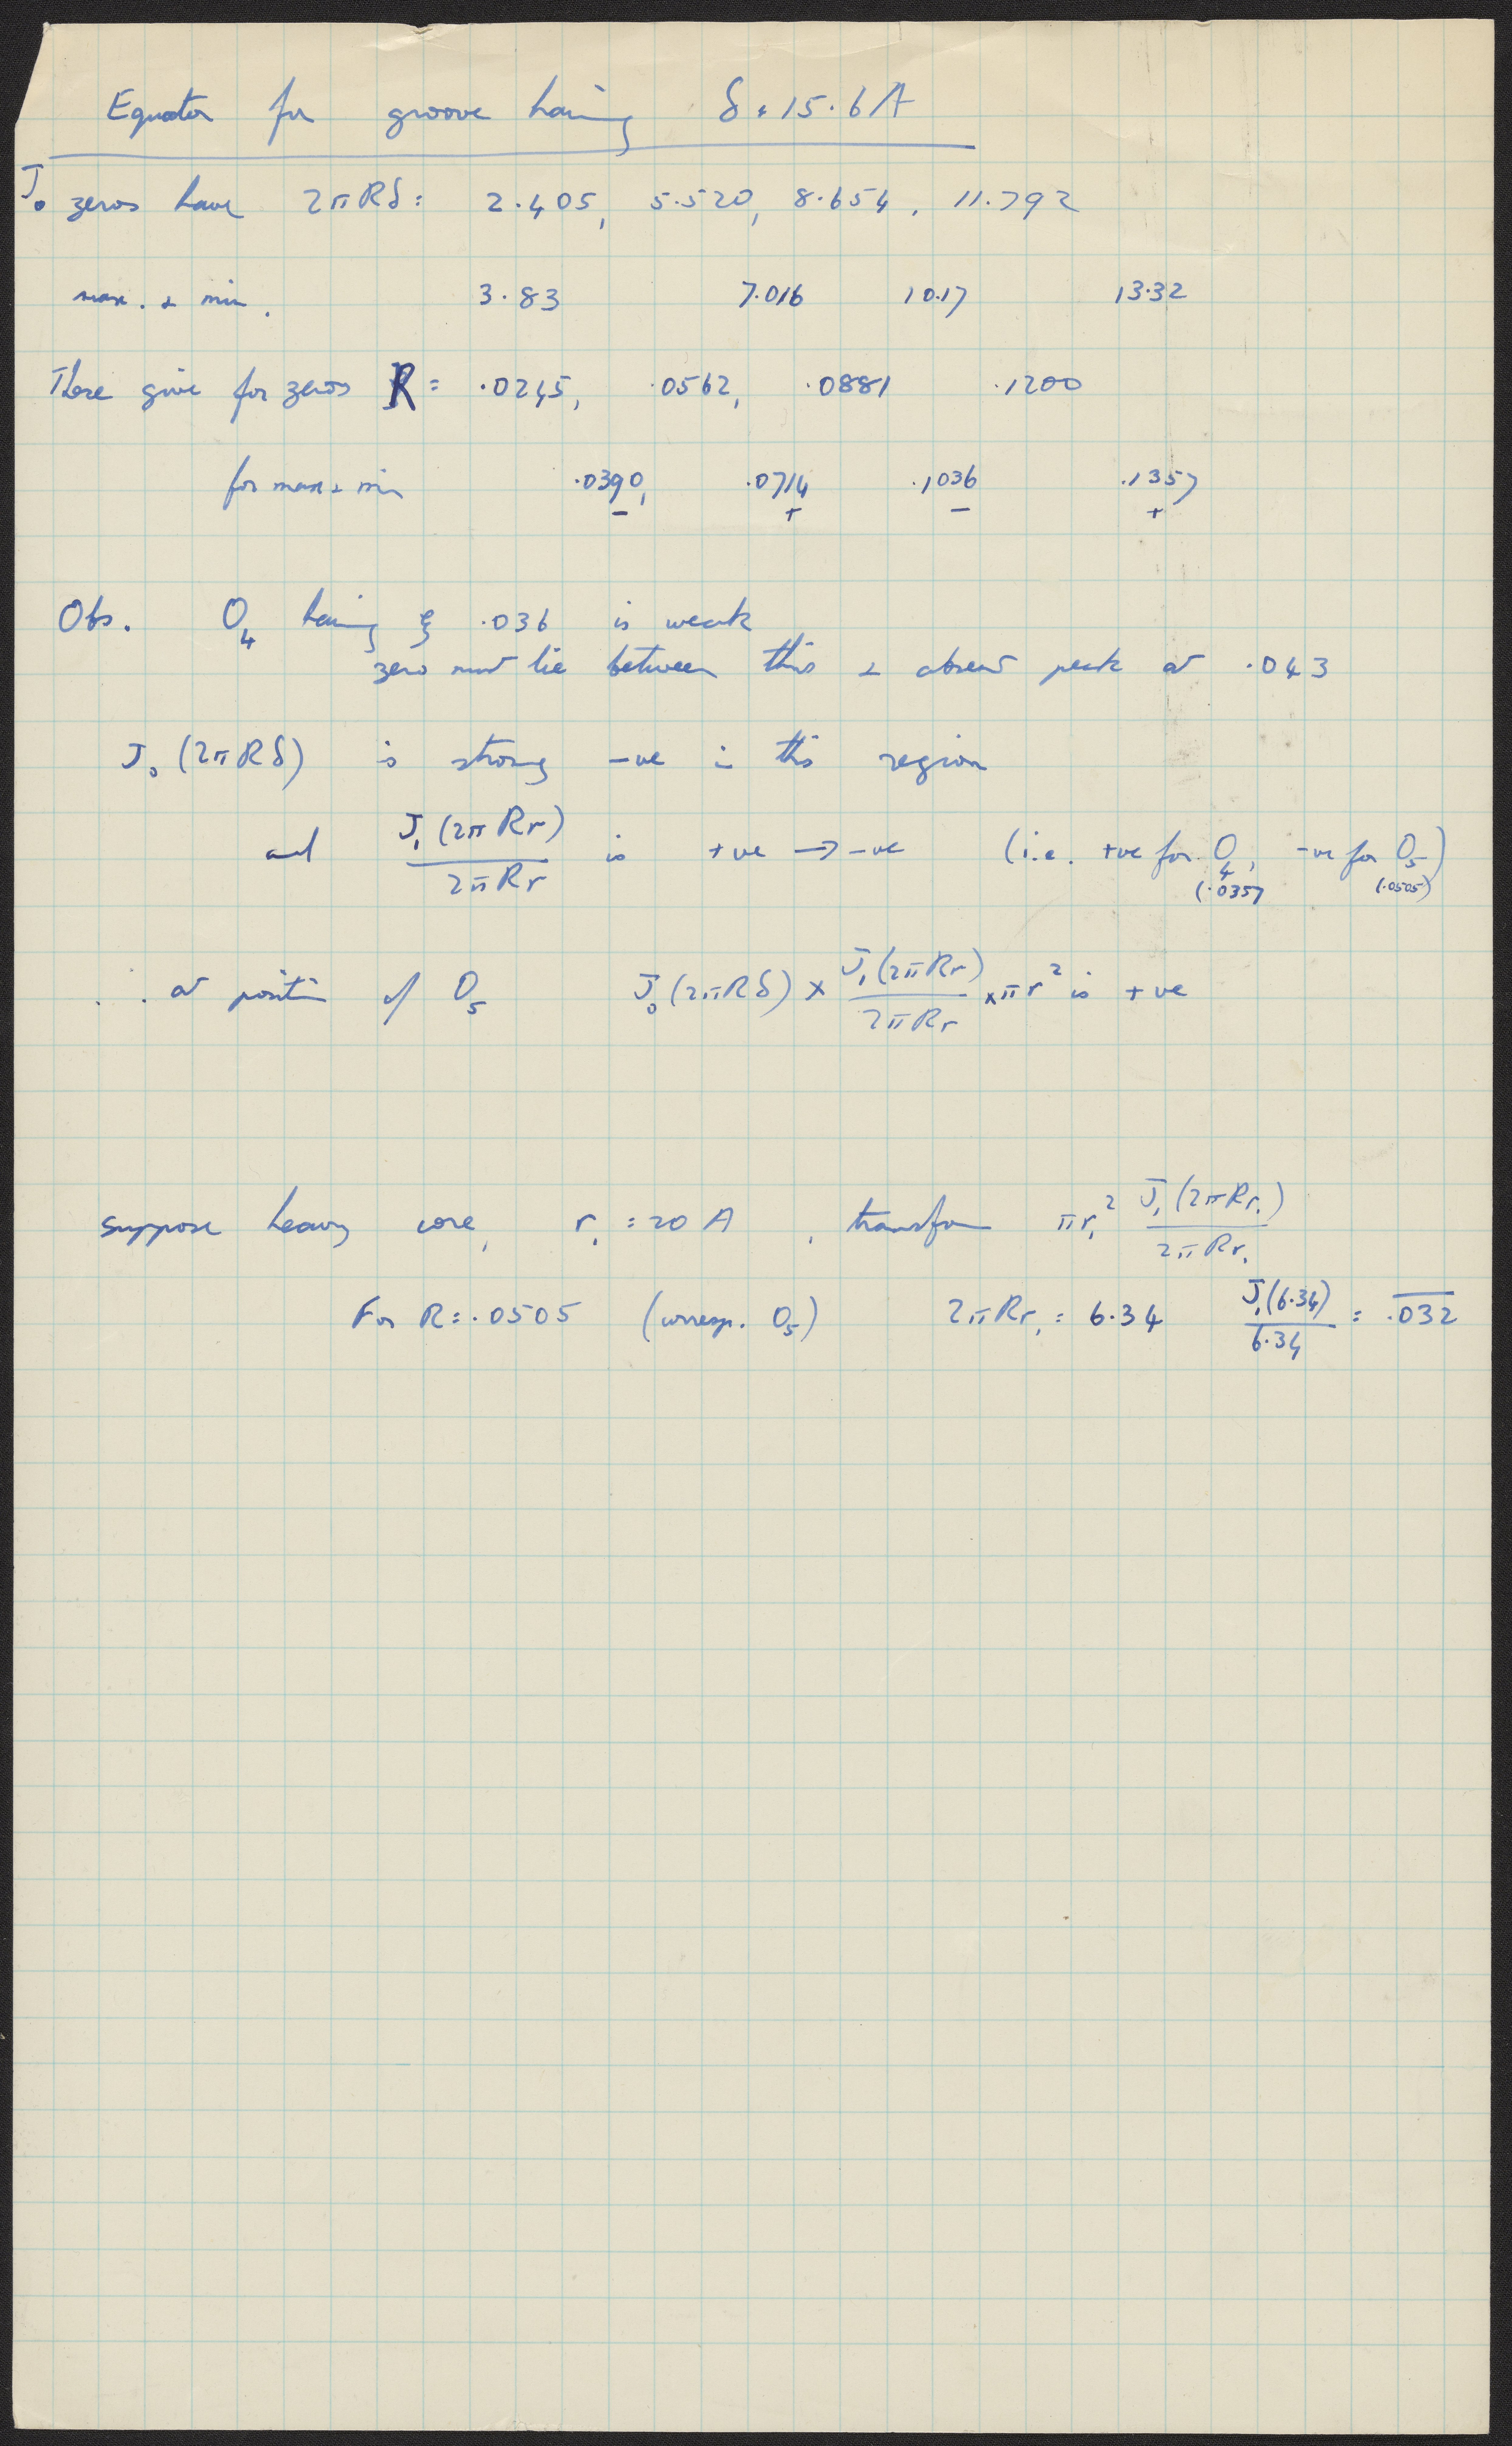 Equator for groove having δ = 15.6 A
J₀ zeros have 2πRδ = 2.405, 5.520, 8.654, 11.792
max. & min. 3.83 7.016 10.17 13.32
These give for zeros R = .0245, .0562, .0881 .1200
for max & min .0390, .0714 .1036 .1357
− + − +
Obs. O₄ having ξ .036 is weak
zero must lie between this & absent peak at .043
J₀ (2πRδ) is strong −ve in this region
and J₁(2πRr) / 2πRr is +ve → −ve (i.e. +ve for O₄, −ve for O₅)
(.0357 (.0505)
. . at position of O₅ J₀(2πRδ) × J₁(2πRr) / 2πRr × πr² is +ve
suppose heavy core, r₁ = 20 A , transform πr₁² J₁(2πRr₁) / 2πRr₁
For R = .0505 (corresp. O₅) 2πRr₁ = 6.34 J₁(6.34) / 6.34 = .0̅3̅2̅